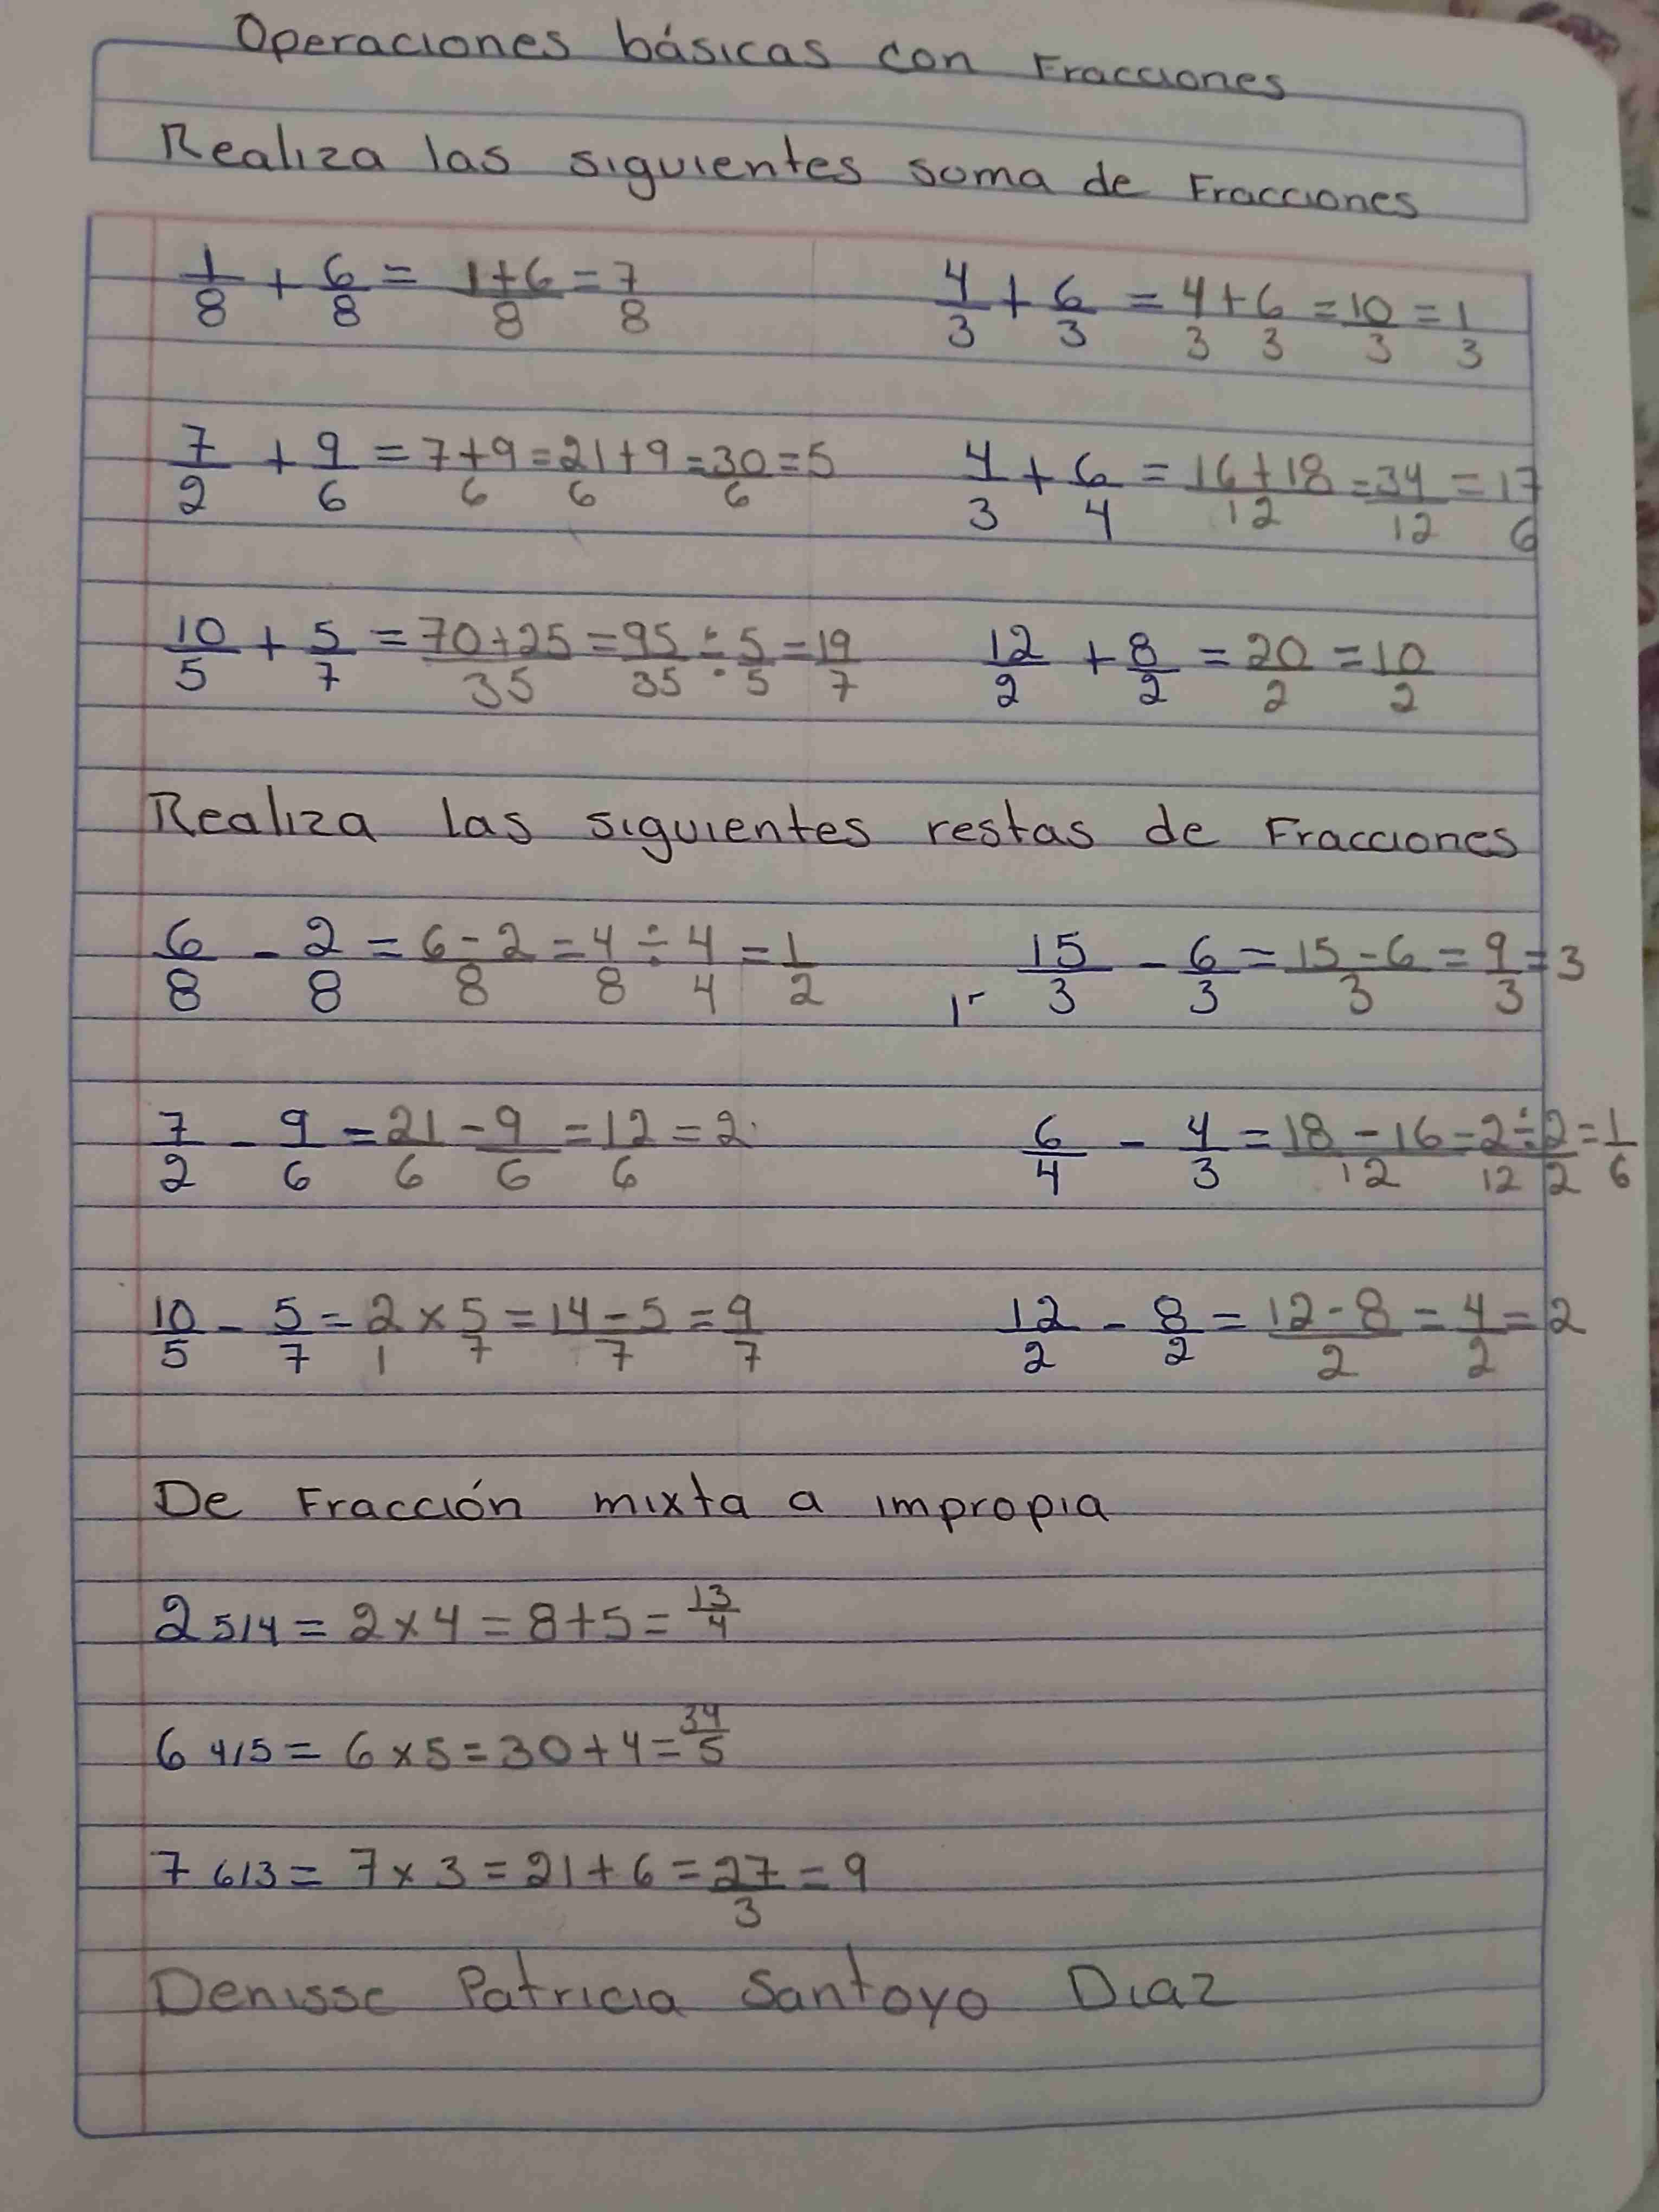 Operaciones básicas con Fracciones
Realiza las siguientes soma de Fracciones
1/8 + 6/8 = 1+6/8 = 7/8    4/3 + 6/3 = 4/3 + 6/3 = 10/3 = 1/3
7/2 + 9/6 = 7+9/6 = 21+9/6 = 30/6 = 5    4/3 + 6/4 = 16+18/12 = 34/12 = 17/6
10/5 + 5/7 = 70+25/35 = 95/35 ÷ 5/5 = 19/7    12/2 + 8/2 = 20/2 = 10/2
Realiza las siguientes restas de Fracciones
6/8 - 2/8 = 6-2/8 = 4/8 ÷ 4/4 = 1/2    15/3 - 6/3 = 15-6/3 = 9/3 = 3
7/2 - 9/6 = 21/6 - 9/6 = 12/6 = 2    6/4 - 4/3 = 18-16/12 = 2/12 ÷ 2/2 = 1/6
10/5 - 5/7 = 2/1 x 5/7 = 14-5/7 = 9/7    12/2 - 8/2 = 12-8/2 = 4/2 = 2
De Fracción mixta a impropia
2 5/4 = 2x4 = 8+5 = 13/4
6 4/5 = 6x5 = 30+4 = 34/5
7 6/3 = 7x3 = 21+6 = 27/3 = 9
Denisse Patricia Santoyo Diaz